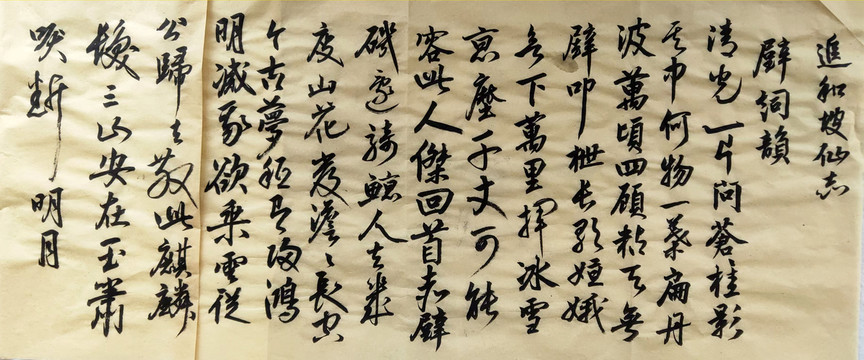 追和坡仙赤
壁詞韻
清光一片問蒼桂影
其中何物一葉扁舟
波萬頃四顧粘天無
壁叩枻長歌姮娥
欲下萬里揮冰雪
京塵千丈可能
容此人傑回首赤壁
磯邊騎鯨人去幾
度山花發澹〻長空
今古夢秪有歸鴻
明滅我欲乘雲從
公歸去散此麒麟
髮三山安在玉簫
吹斷明月